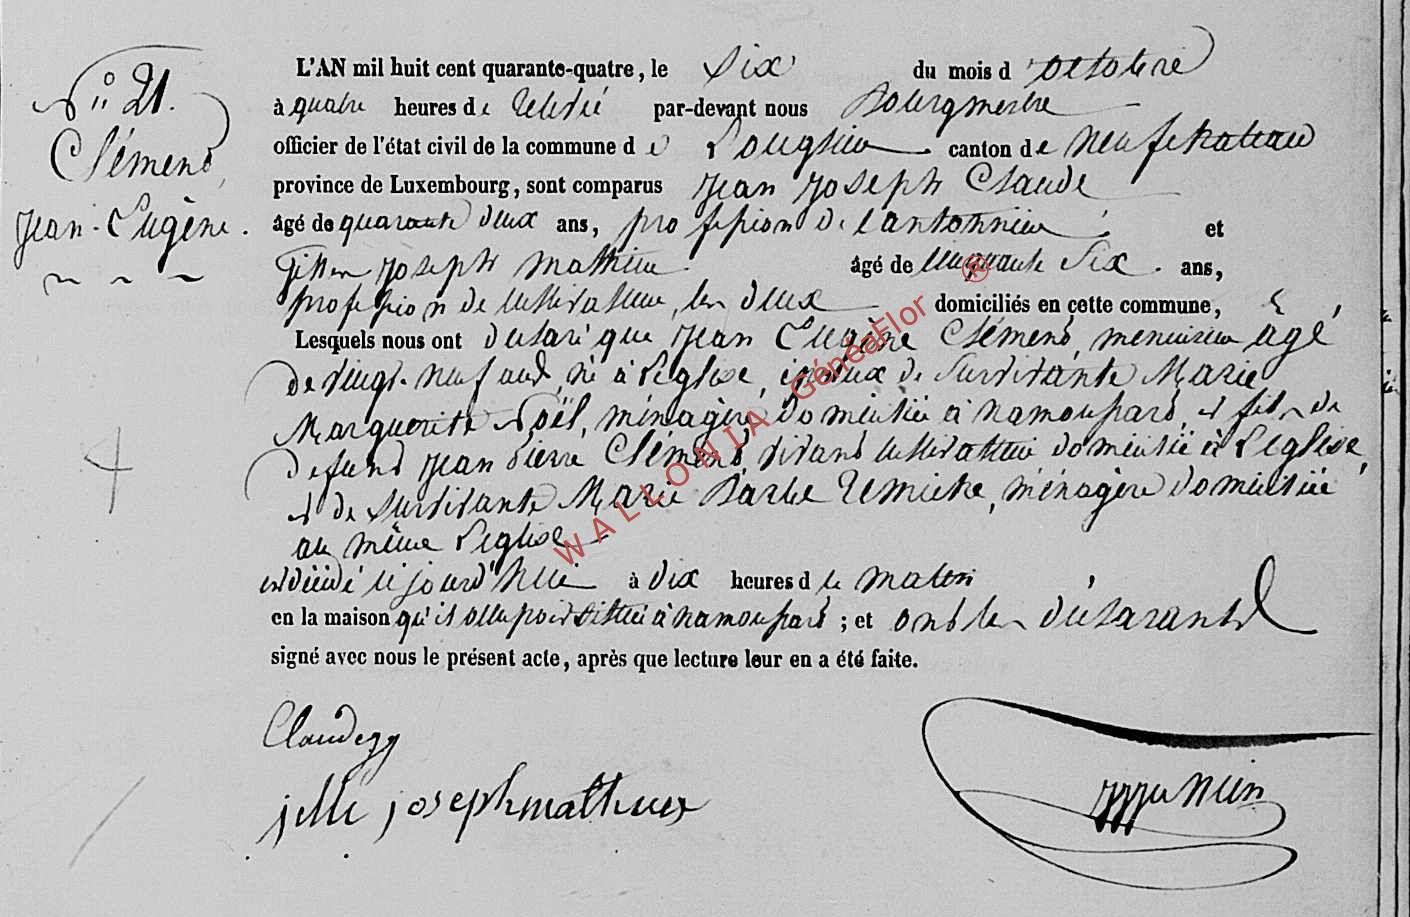 N° 21.
Clément,
Jean-Eugène.
L'AN mil huit cent quarante-quatre, le six du mois d'octobre
à quatre heures de relevée par-devant nous Bourgmestre
officier de l'état civil de la commune de Longlier canton de Neufchateau
province de Luxembourg, sont comparus Jean Joseph Claude
âgé de quarante deux ans, profession de Cantonnier et
Joseph Mathieu âgé de cinquante Six ans,
profession de cultivateur, les deux domiciliés en cette commune,
Lesquels nous ont déclaré que Jean Eugène Clément, menuisier âgé
de vingt-neuf ans, né à Léglise, époux de Survivante Marie
Marguerite Noël, ménagère, domiciliée à Namoussart, et fils de
défunt Jean Pierre Clément, vivant cultivateur domicilié à Léglise,
et de survivante Marie Barbe ménagère domiciliée
au même Léglise
est décédé cejourd'hui à dix heures du matin
en la maison qu'il occupoit située à Namoussart ; et ont les déclarants
signé avec nous le présent acte, après que lecture leur en a été faite.
Claude jj
joseph mathieu
WALLONIA GénéaFlor ®